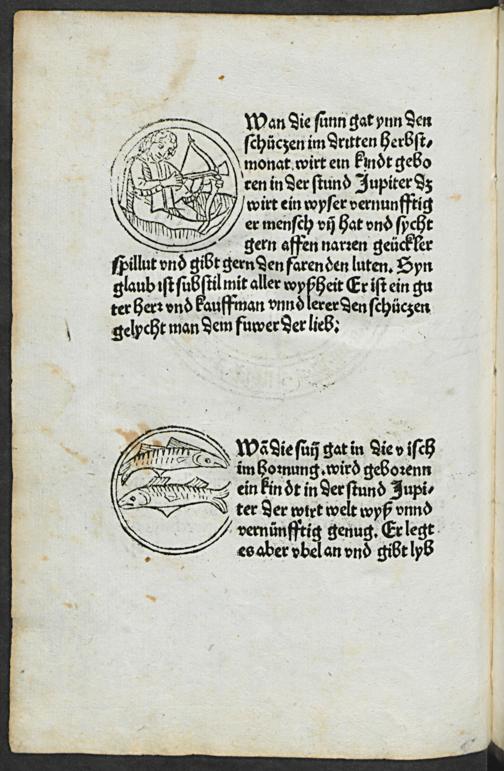 Wan die sunn gat ynn den
schüczen im dritten herbst⸗
monat wirt ein kindt gebo
ren in der stund Jupiter dz
wirt ein wyser vernunfftig
er mensch vn̄ hat vnd sycht
gern affen narren geückler
spillut vnd gibt gern den farenden luten. Syn
glaub ist substil mit aller wyßheit Er ist ein gu
ter herr vnd kauffman vnnd lerer den schüczen
gelycht man dem fuwer der lieb;
Wā die sun̄ gat in die visch
im hornung, wird geborenn
ein kindt in der stund Jupi⸗
ter der wirt welt wyß vnnd
vernünfftig genug. Er legt
es aber vbel an vnd gibt lyb